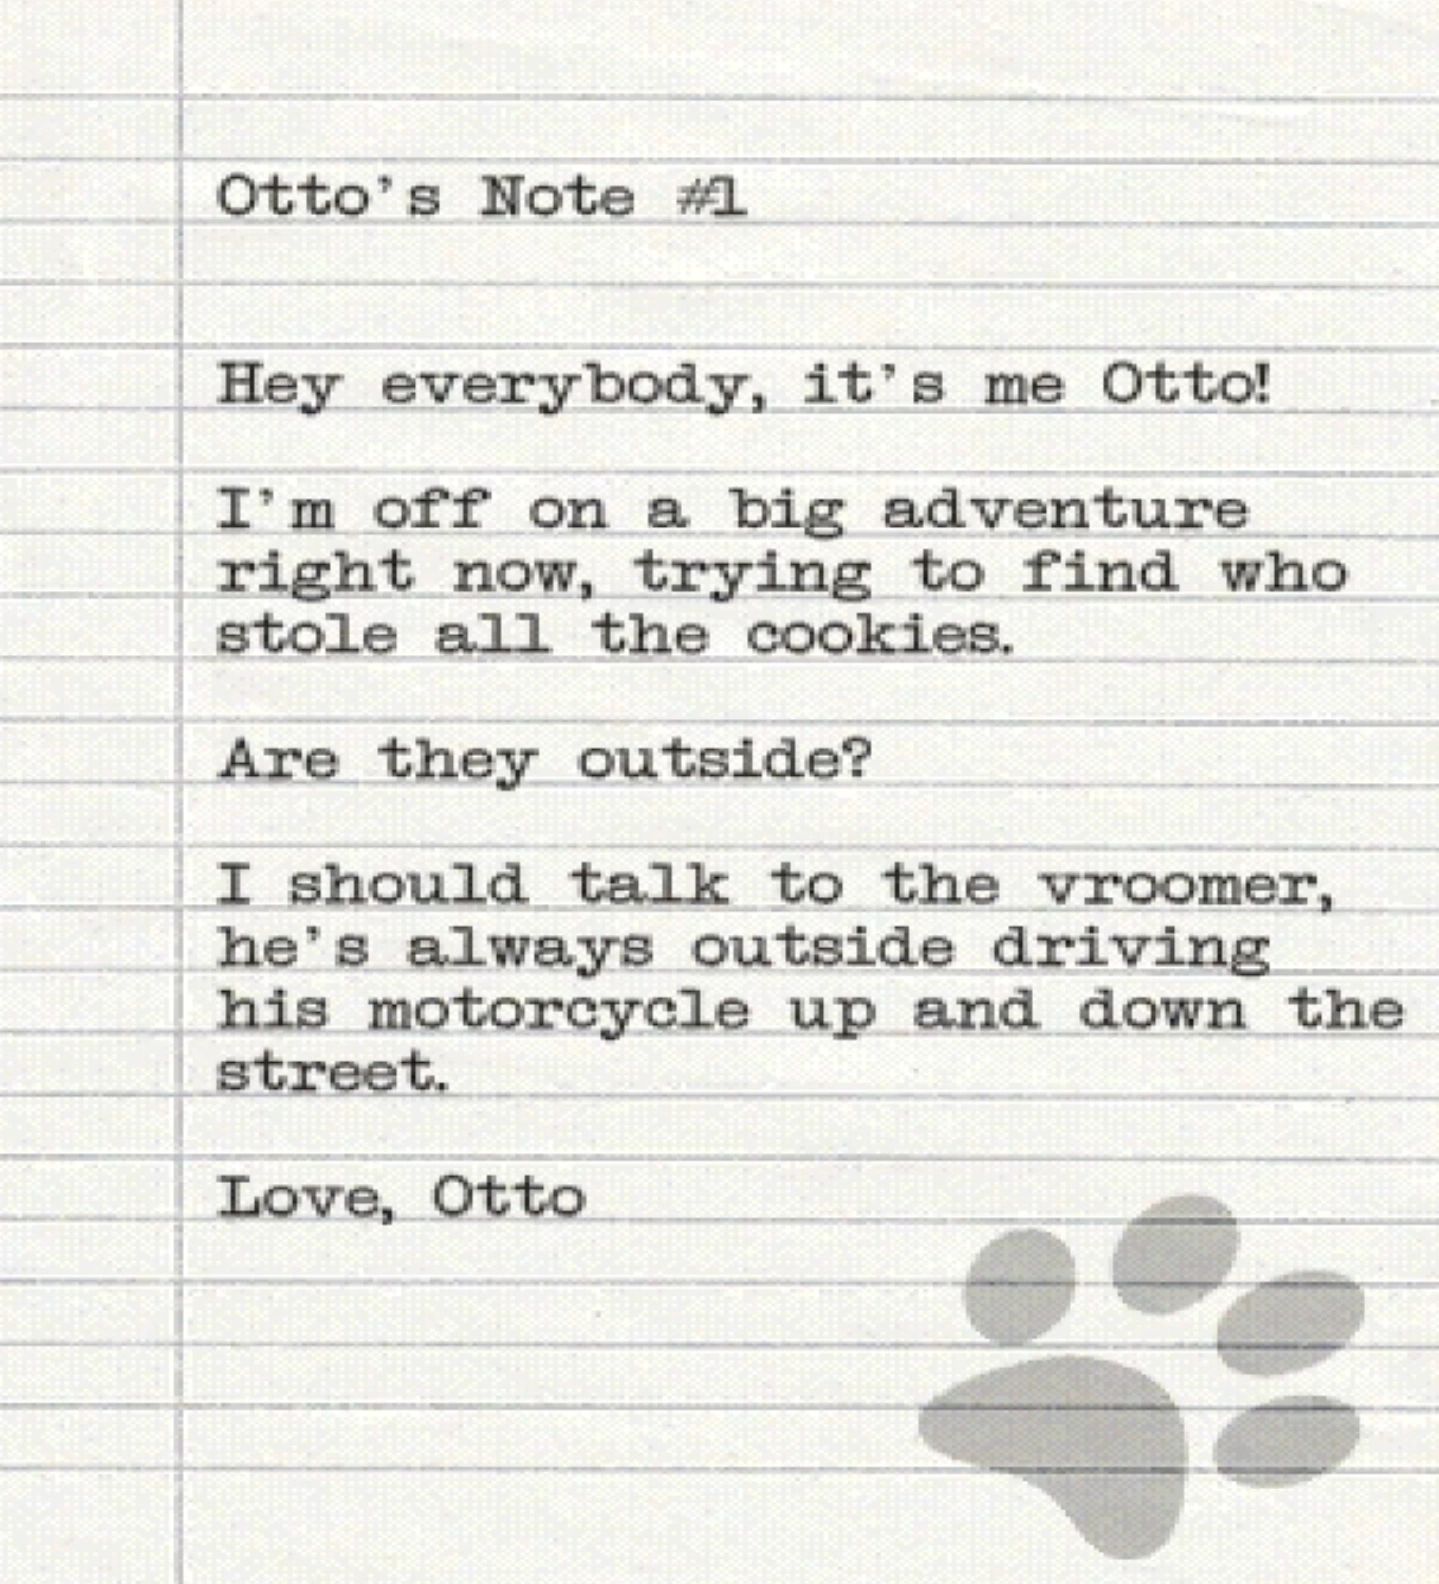 Otto's Note #1
Hey everybody, it's me Otto!
I'm off on a big adventure
right now, trying to find who
stole all the cookies.
Are they outside?
I should talk to the vroomer,
he's always outside driving
his motorcycle up and down the
street.
Love, Otto